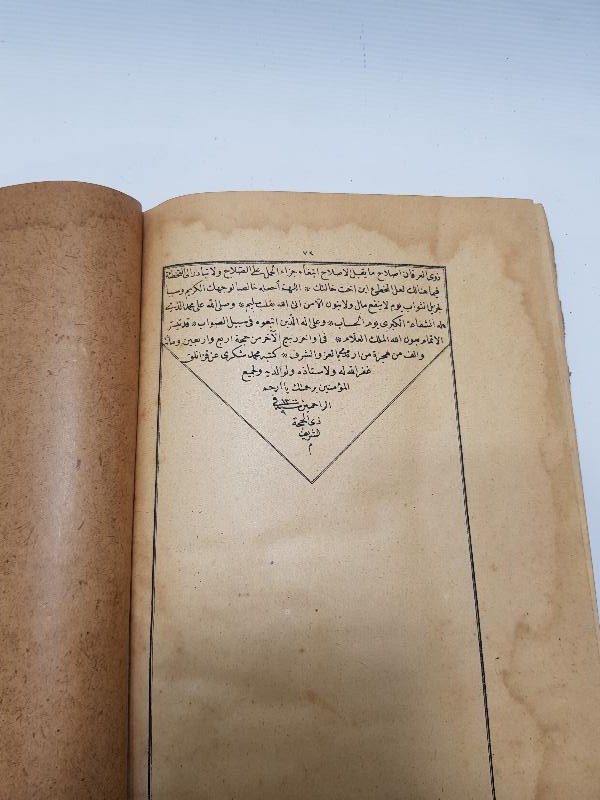 ٧٩
ذوى العرفان اصلاح ما يقبل الاصلاح ابتغاء جزاء الحمل على الصلاح ولا تبادر الى التخطئة
فيما هنالك لعل المخطئ ابن اخت خالتك * اللهم اجعله خالصا لوجهك الكريم وسببا
لجزيل الثواب يوم لا ينفع مال ولا بنون الا من اتى الله بقلب سليم * وصل الله على محمد الذى
له الشفاعة الكبرى يوم الحساب * وعلى اله الذين اتبعوه فى سبيل الصواب * قد تيسر
الاتمام بعون الله الملك العلام * فى واخر ربيع الآخر من حجة اربع واربعين ومائة
والف من هجرة من له العز والشرف * كتبه محمد شكرى
غفر الله له ولاستاذه ولوالديه ولجميع
المؤمنين برحمتك يا ارحم
الراحمين فى
ذى الحجة
الشريفة
م